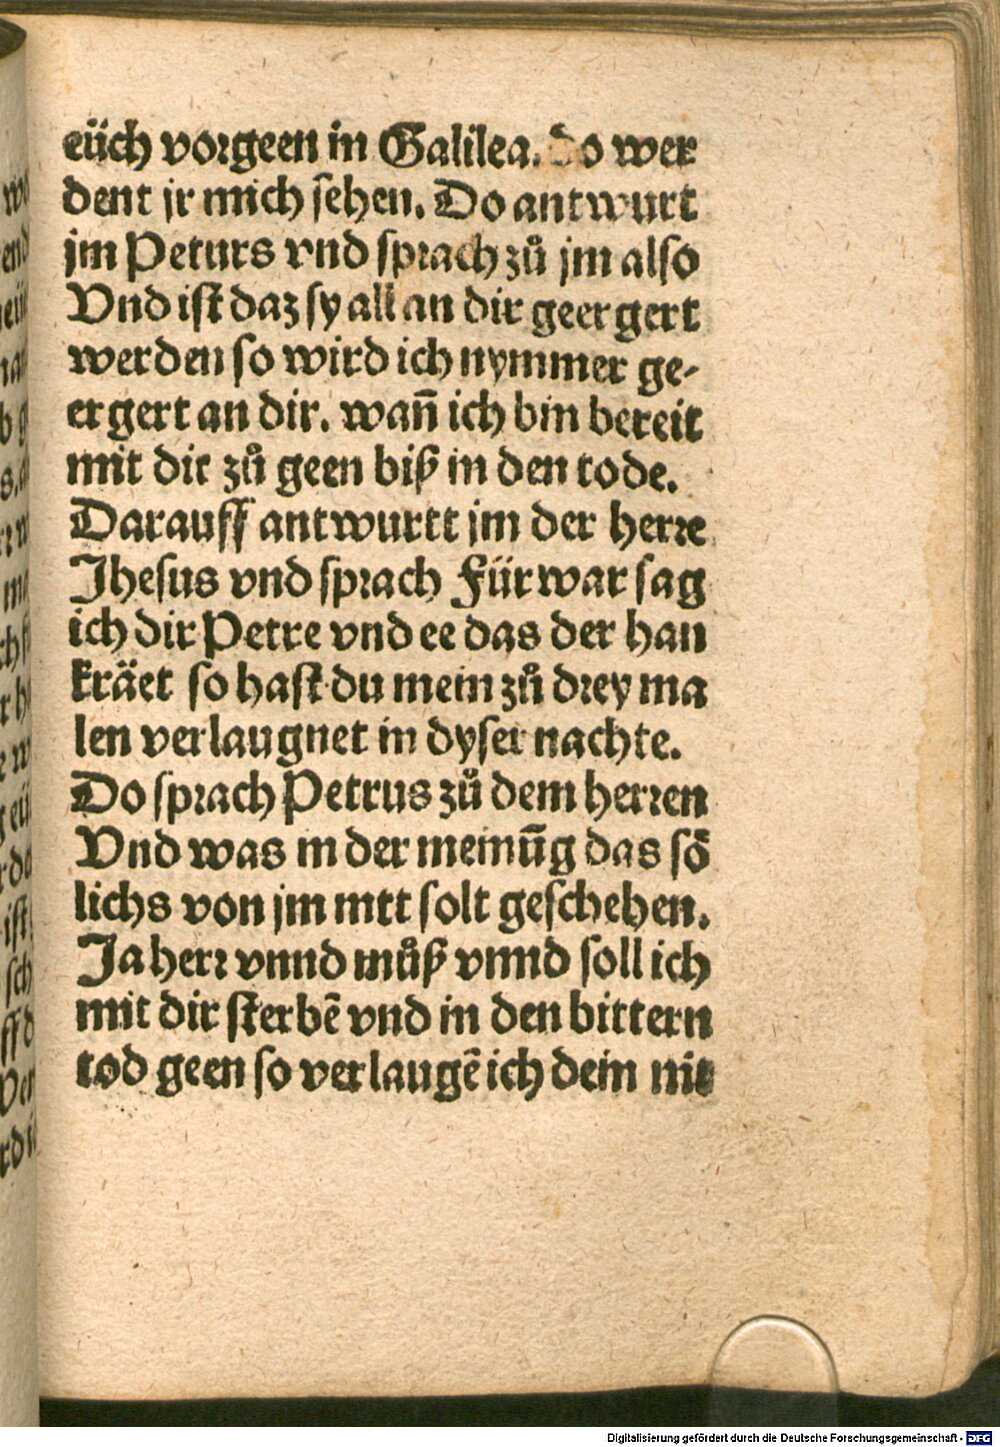 eüch vorgeen in Galilea. do wer
dent jr mich sehen. Do antwurt
jm Peturs vnd sprach zů jm also
Vnd ist daz sy all an dir geergert
werden so wird ich nymmer ge-
ergert an dir. wañ ich bin bereit
mit dir zů geen biß in den tode.
Darauff antwurtt jm der herre
Jhesus vnd sprach Fürwar sag
ich dir Petre vnd ee das der han
kräet so hast du mein zů drey ma
len verlaugnet in dyser nachte.
Do sprach Petrus zů dem herren
Vnd was in der meinūg das sö
lichs von jm mtt solt geschehen.
Ja herr vnnd můß vnnd soll ich
mit dir sterbē vnd in den bittern
tod geen so verlaugē ich dein nit
Digitalisierung gefördert durch die Deutsche Forschungsgemeinschaft - DFG